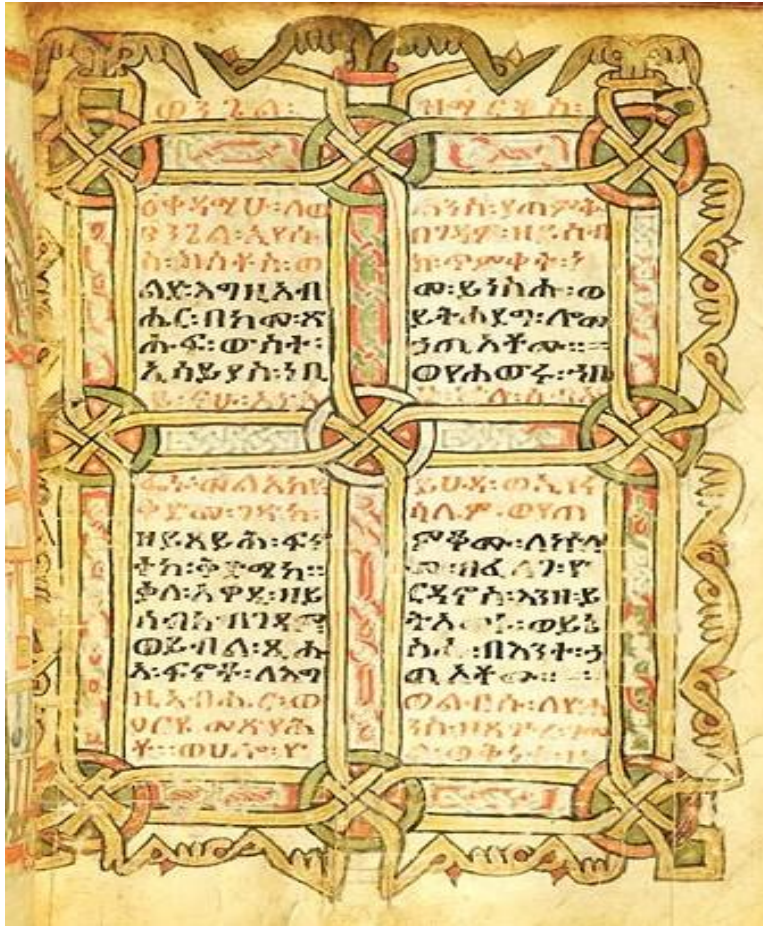 ወንጌል፡ ዘማርቆስ፡
ቀዳሚሁ፡ለወ
ንጌል፡ኢየሱ
ስ፡ክርስቶስ፡ወ
ልደ፡እግዚአብ
ሔር፡በከመ፡ጽ
ሑፍ፡ውስተ፡
ኢሳይያስ፡ነቢ
ይ፡ናሁ፡
ፌኑ፡መልአክየ
ቅድመ፡ገጽከ፡
ዘይጸይሕ፡ፍኖ
ተከ፡ቅድሜከ።
ቃለ፡አዋዲ፡ዘይ
ሰብክ፡በገዳም
ወይብል፡ጺሑ
አ፡ፍኖቶ፡ለእግ
ዚአብሔር፡ወ
ዐርዩ መጽያሕ
ቶ፡፡ወሀሎ፡ዮ
ሐንስ፡ያጠምቅ
በገዳም፡ዘይሰብ
ክ፡ጥምቀት፡ከ
መ፡ይነስሑ፡ወ
ይትኀደግ፡ሎሙ
ኃጢአቶሙ፡፡
ወየሐውሩ፡ኀቤ
ይሁዳ፡ወኢየሩ
ሳሌም፡ወየጠ
ምቆሙ፡ለኵሎ
ሙ፡በፈለገ፡ዮ
ርዳኖስ፡እንዘ፡ይ
ትአመኑ፡ወይኔ
ስሑ፡በእንተ፡ኃ
ጢአቶሙ፡፡
ወልብሱ፡ለዮሐ
ንስ፡ዘጸጕረ፡ገመ
ል፡ወቅናቱ፡